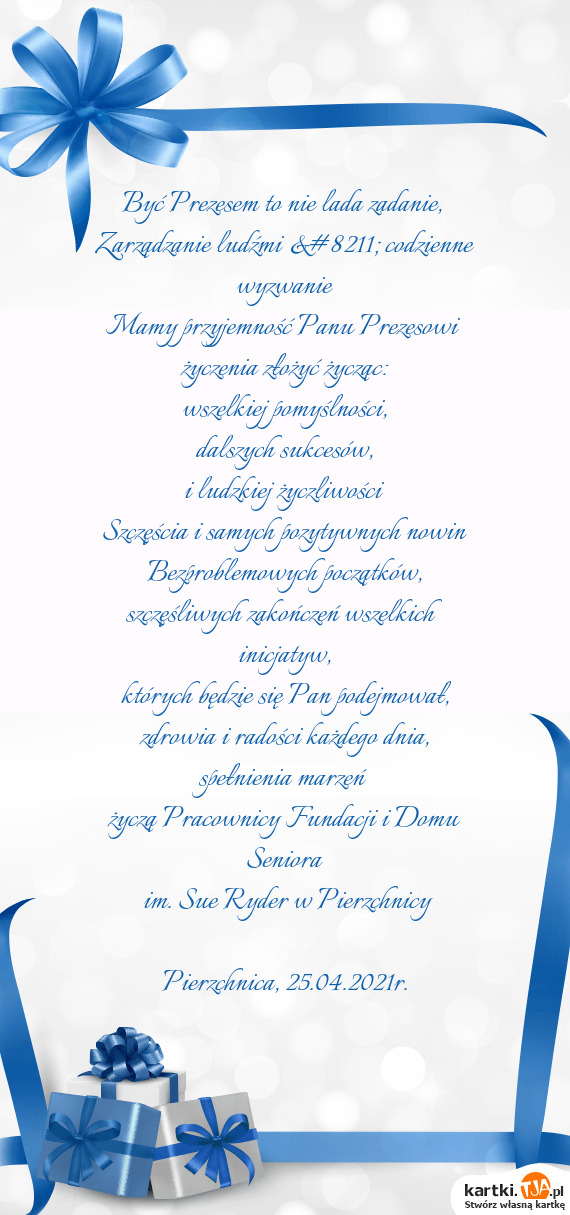 Być Prezesem to nie lada zadanie,
Zarządzanie ludźmi &#8211; codzienne
wyzwanie
Mamy przyjemność Panu Prezesowi
życzenia złożyć życząc:
wszelkiej pomyślności,
dalszych sukcesów,
i ludzkiej życzliwości
Szczęścia i samych pozytywnych nowin
Bezproblemowych początków,
szczęśliwych zakończeń wszelkich
inicjatyw,
których będzie się Pan podejmował,
zdrowia i radości każdego dnia,
spełnienia marzeń
życzą Pracownicy Fundacji i Domu
Seniora
im. Sue Ryder w Pierzchnicy
Pierzchnica, 25.04.2021r.
kartki.TJA.pl
Stwórz własną kartkę